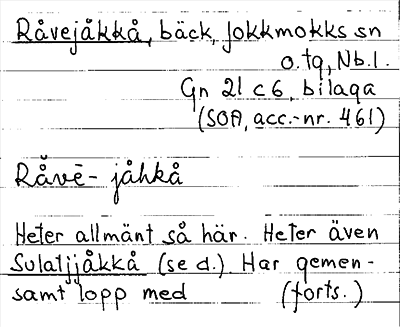 Råvejåkkå, bäck, Jokkmokks sn
o. tg, Nb. l.
Gn 21 c 6, bilaga
(SOA, acc.-nr. 461)
Råvē- jåhkå
Heter allmänt så här. Heter även
Sulatjjåkkå (se d.) Har gemen-
samt lopp med (forts.)